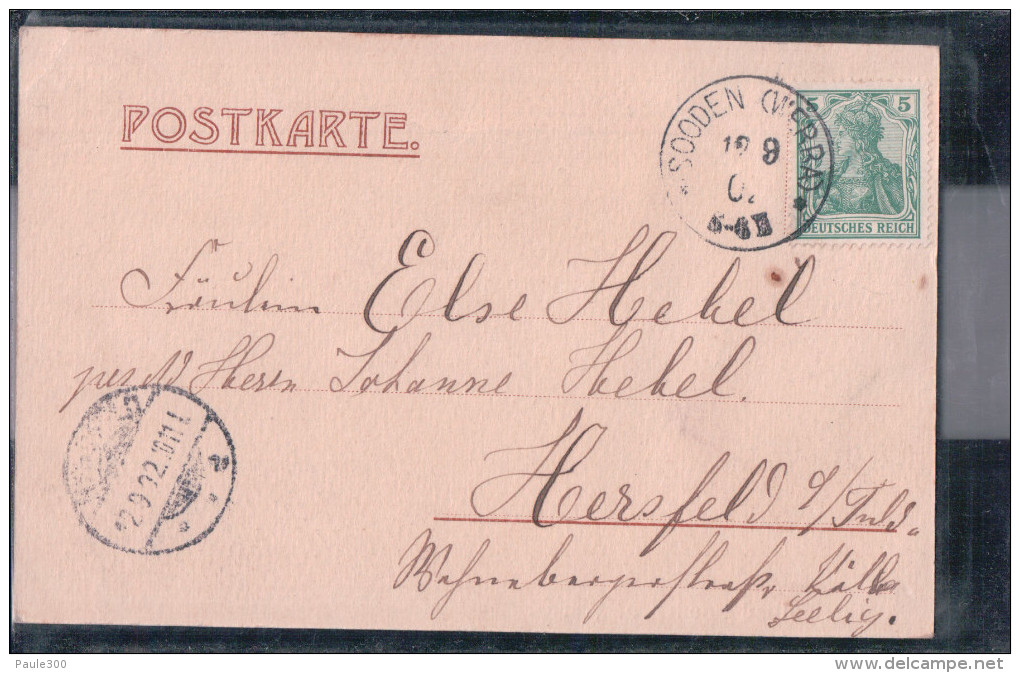 POSTKARTE.
SOODEN (WERRA)
12 9
02
5-6 N
5 5
DEUTSCHES REICH
Fräulein Else Hebel
Herrn Johanne Hebel.
Hersfeld
12.9.02.10-11 V.
Seelig.
Paule300
delcampe.net